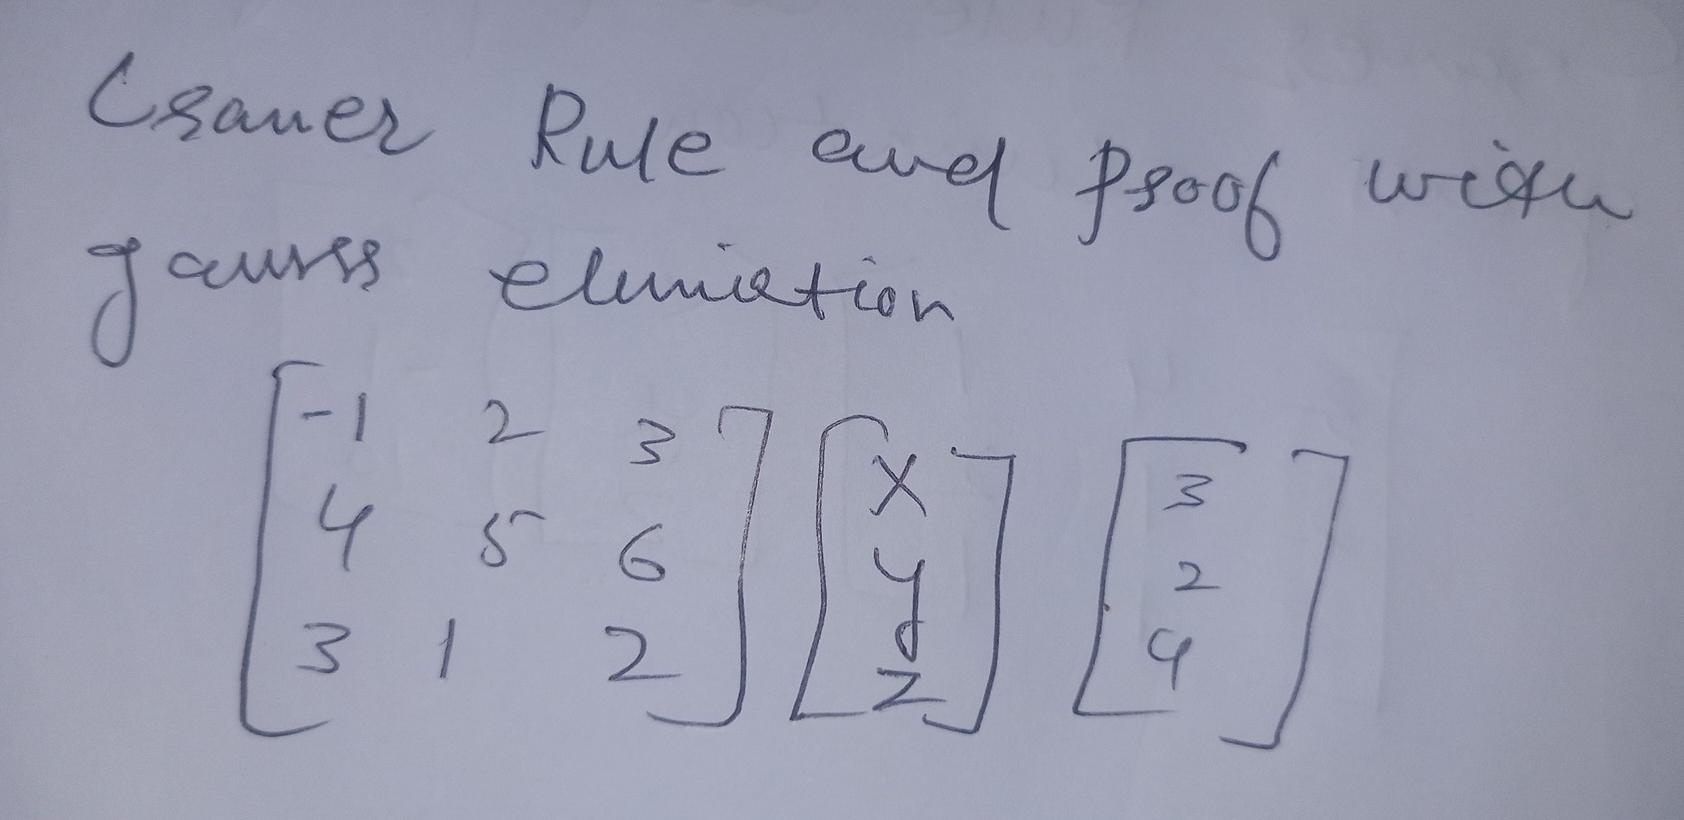 Cramer Rule and Proof with
gauss elimiation
[-1 2 3] [x] [3]
[4 5 6] [y] [2]
[3 1 2] [z] [4]